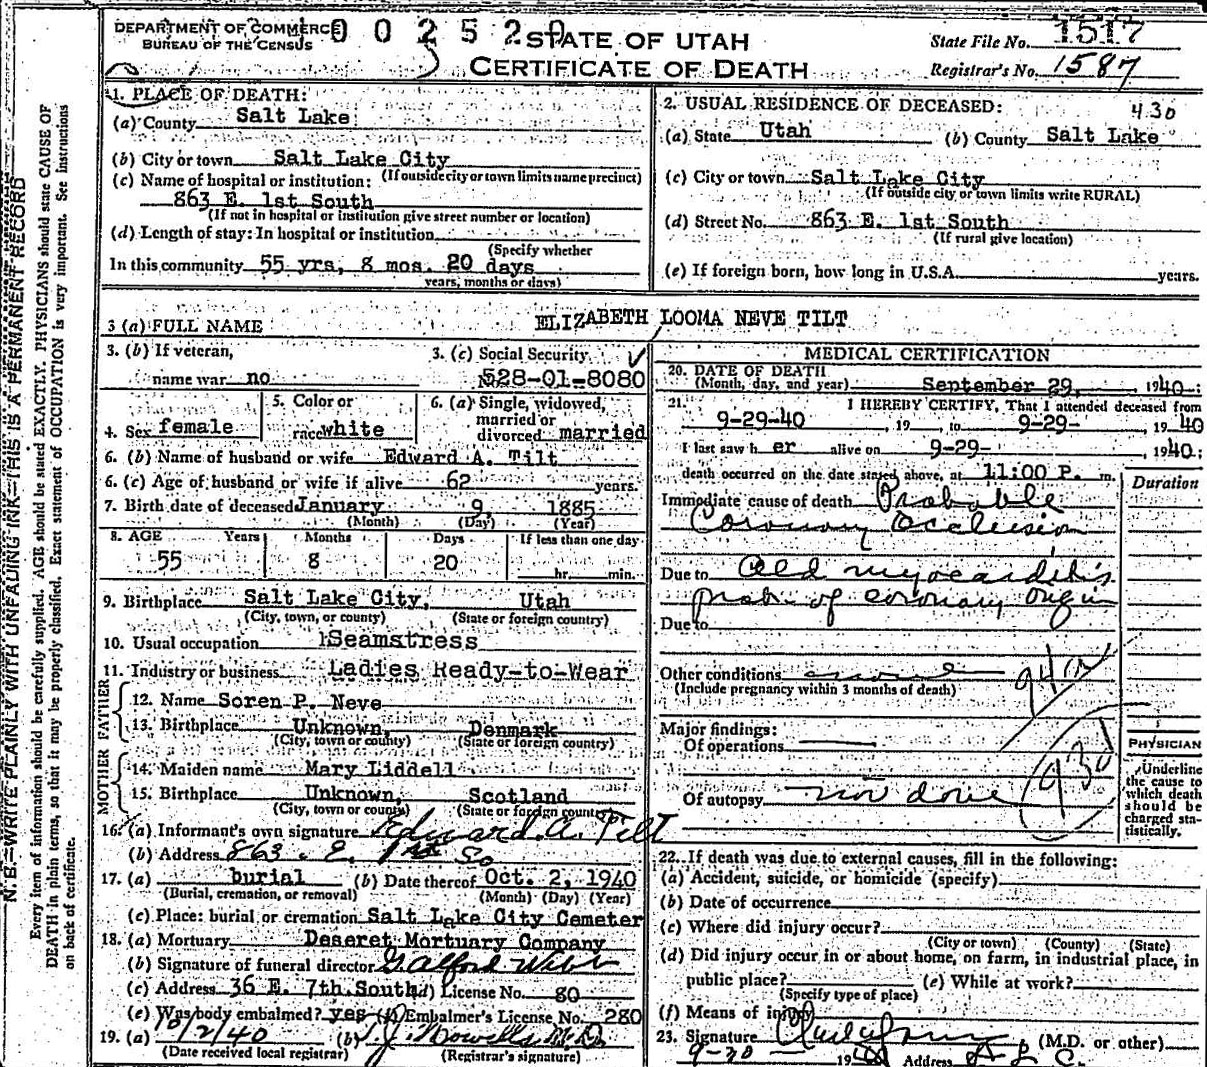 DEPARTMENT OF COMMERCE
BUREAU OF THE CENSUS
0 0 2 5 2 0
STATE OF UTAH
CERTIFICATE OF DEATH
State File No. 1517
Registrar's No. 1587
1. PLACE OF DEATH:
(a) County Salt Lake
(b) City or town Salt Lake City
(If outside city or town limits name precinct)
(c) Name of hospital or institution:
863 E. 1st South
(If not in hospital or institution give street number or location)
(d) Length of stay: In hospital or institution
(Specify whether
In this community 55 yrs, 8 mos. 20 days
years, months or days)
2. USUAL RESIDENCE OF DECEASED: 430
(a) State Utah (b) County Salt Lake
(c) City or town Salt Lake City
(If outside city or town limits write RURAL)
(d) Street No. 863 E. 1st South
(If rural give location)
(e) If foreign born, how long in U.S.A. years.
3 (a) FULL NAME ELIZABETH LOOMA NEVE TILT
3. (b) If veteran,
name war no
3. (c) Social Security
528-01-8080
4. Sex female
5. Color or
race white
6. (a) Single, widowed,
married or
divorced married
6. (b) Name of husband or wife Edward A. Tilt
6. (c) Age of husband or wife if alive 62 years.
7. Birth date of deceased January 9, 1885
(Month) (Day) (Year)
8. AGE Years Months Days If less than one day
55 8 20 hr. min.
9. Birthplace Salt Lake City, Utah
(City, town, or county) (State or foreign country)
10. Usual occupation Seamstress
11. Industry or business Ladies Ready-to-Wear
FATHER
12. Name Soren P. Neve
13. Birthplace Unknown, Denmark
(City, town or county) (State or foreign country)
MOTHER
14. Maiden name Mary Liddell
15. Birthplace Unknown, Scotland
(City, town or county) (State or foreign country)
16. (a) Informant's own signature Edward A. Tilt
(b) Address 863 E. 1st So
17. (a) burial (b) Date thereof Oct. 2, 1940
(Burial, cremation, or removal) (Month) (Day) (Year)
(c) Place: burial or cremation Salt Lake City Cemeter
18. (a) Mortuary Deseret Mortuary Company
(b) Signature of funeral director
(c) Address 36 E. 7th South (d) License No. 80
(e) Was body embalmed? yes (f) Embalmer's License No. 280
19. (a) 10/2/40 (b)
(Date received local registrar) (Registrar's signature)
MEDICAL CERTIFICATION
20. DATE OF DEATH
(Month, day, and year) September 29, 1940
21. I HEREBY CERTIFY, That I attended deceased from
9-29-40, 19 , to 9-29-, 1940
I last saw h er alive on 9-29-, 1940;
death occurred on the date stated above, at 11:00 P. m.
Duration
Immediate cause of death Probable
Coronary Occlusion
Due to Old myocarditis
prob. of coronary origin
Due to
Other conditions none
(Include pregnancy within 3 months of death)
94a
Major findings:
Of operations
930
Of autopsy not done
PHYSICIAN
Underline
the cause to
which death
should be
charged sta-
tistically.
22. If death was due to external causes, fill in the following:
(a) Accident, suicide, or homicide (specify)
(b) Date of occurrence
(c) Where did injury occur?
(City or town) (County) (State)
(d) Did injury occur in or about home, on farm, in industrial place, in
public place? (e) While at work?
(Specify type of place)
(f) Means of injury
23. Signature (M.D. or other)
9-30- 1940 Address S L C.
N. B.—WRITE PLAINLY WITH UNFADING INK—THIS IS A PERMANENT RECORD
Every item of information should be carefully supplied. AGE should be stated EXACTLY. PHYSICIANS should state CAUSE OF
DEATH in plain terms, so that it may be properly classified. Exact statement of OCCUPATION is very important. See Instructions
on back of certificate.